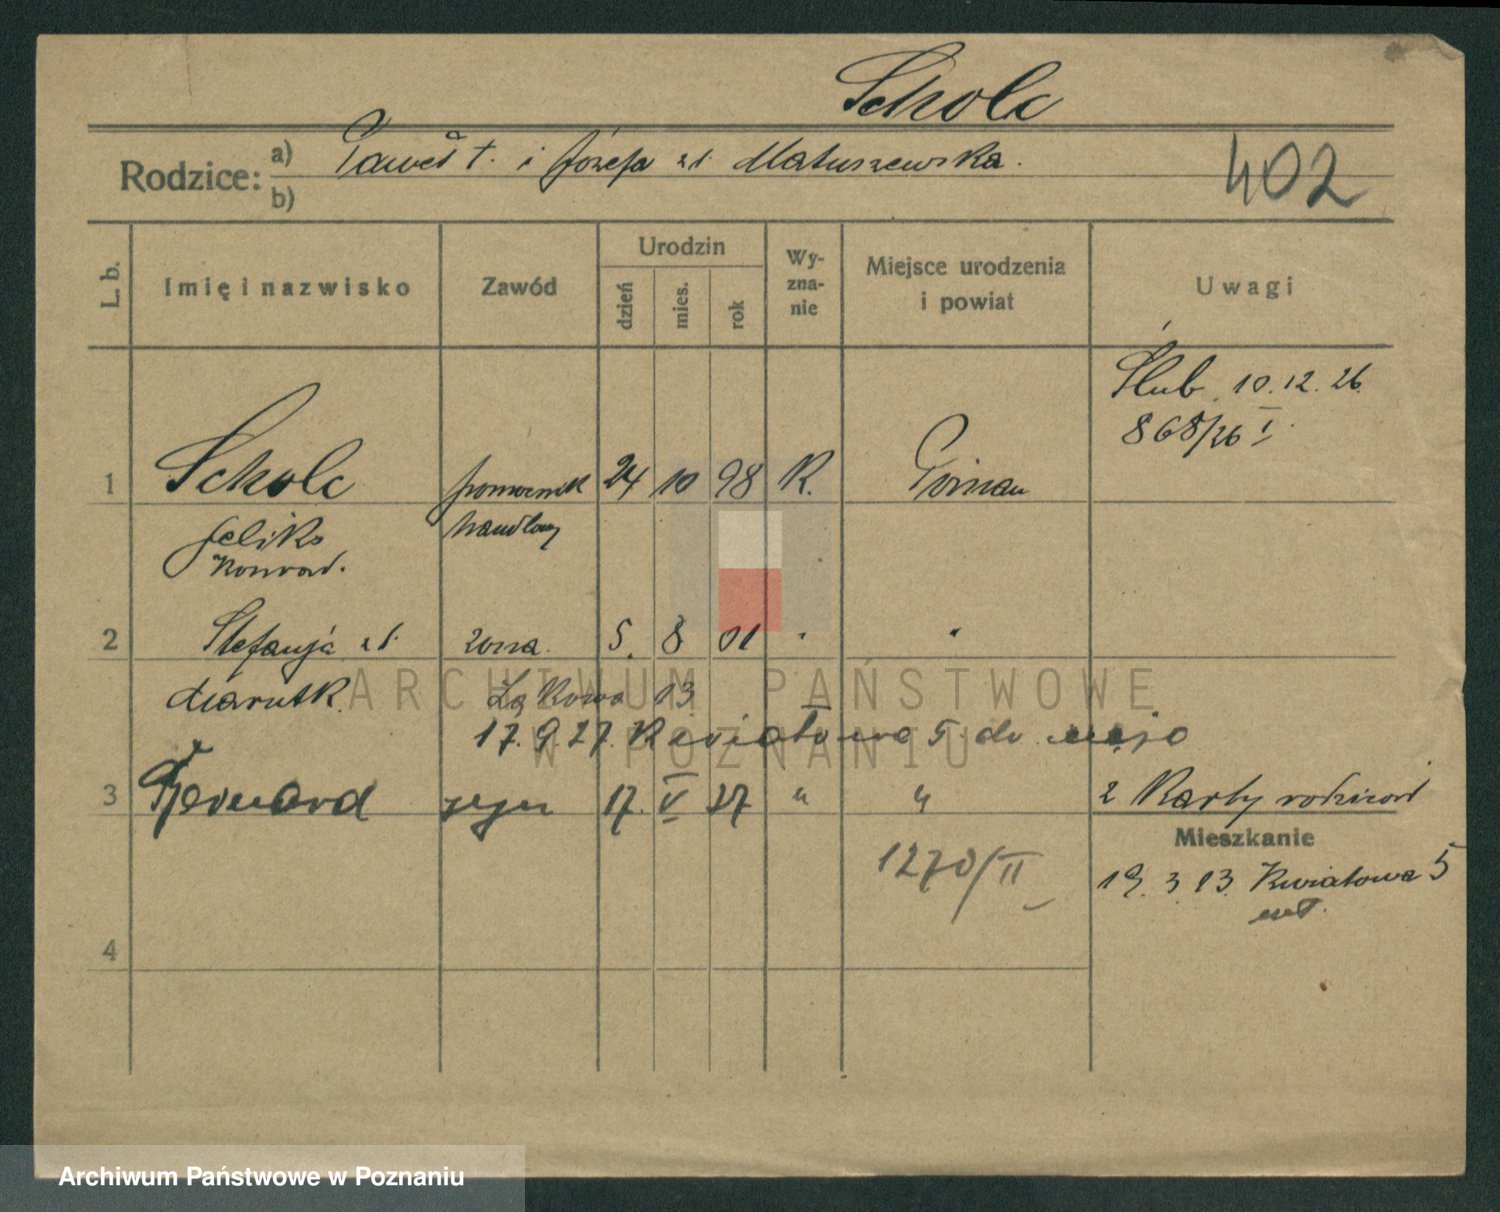 Scholc
Rodzice: a) Paweł †. i Józefa zd. Matuszewska.
b)
402
L. b. Imię i nazwisko Zawód Urodzin dzień mies. rok Wyznanie Miejsce urodzenia i powiat Uwagi
Ślub 10.12.26
868/26 I.
1 Scholc pomocnik 24 10 98 R. Poznań
Feliks handlowy
Konrad.
2 Stefanja zd. żona. 5. 8 01 " "
Marutk. Łąkowa 13
17.9.27. Kwiatowa 5. do niejo
3 Bernard syn 17. V 27 " " 2 Karty rodzicow
Mieszkanie
1270/II
19.3.13. Kwiatowa 5
4
ARCHIWUM PAŃSTWOWE
W POZNANIU
Archiwum Państwowe w Poznaniu